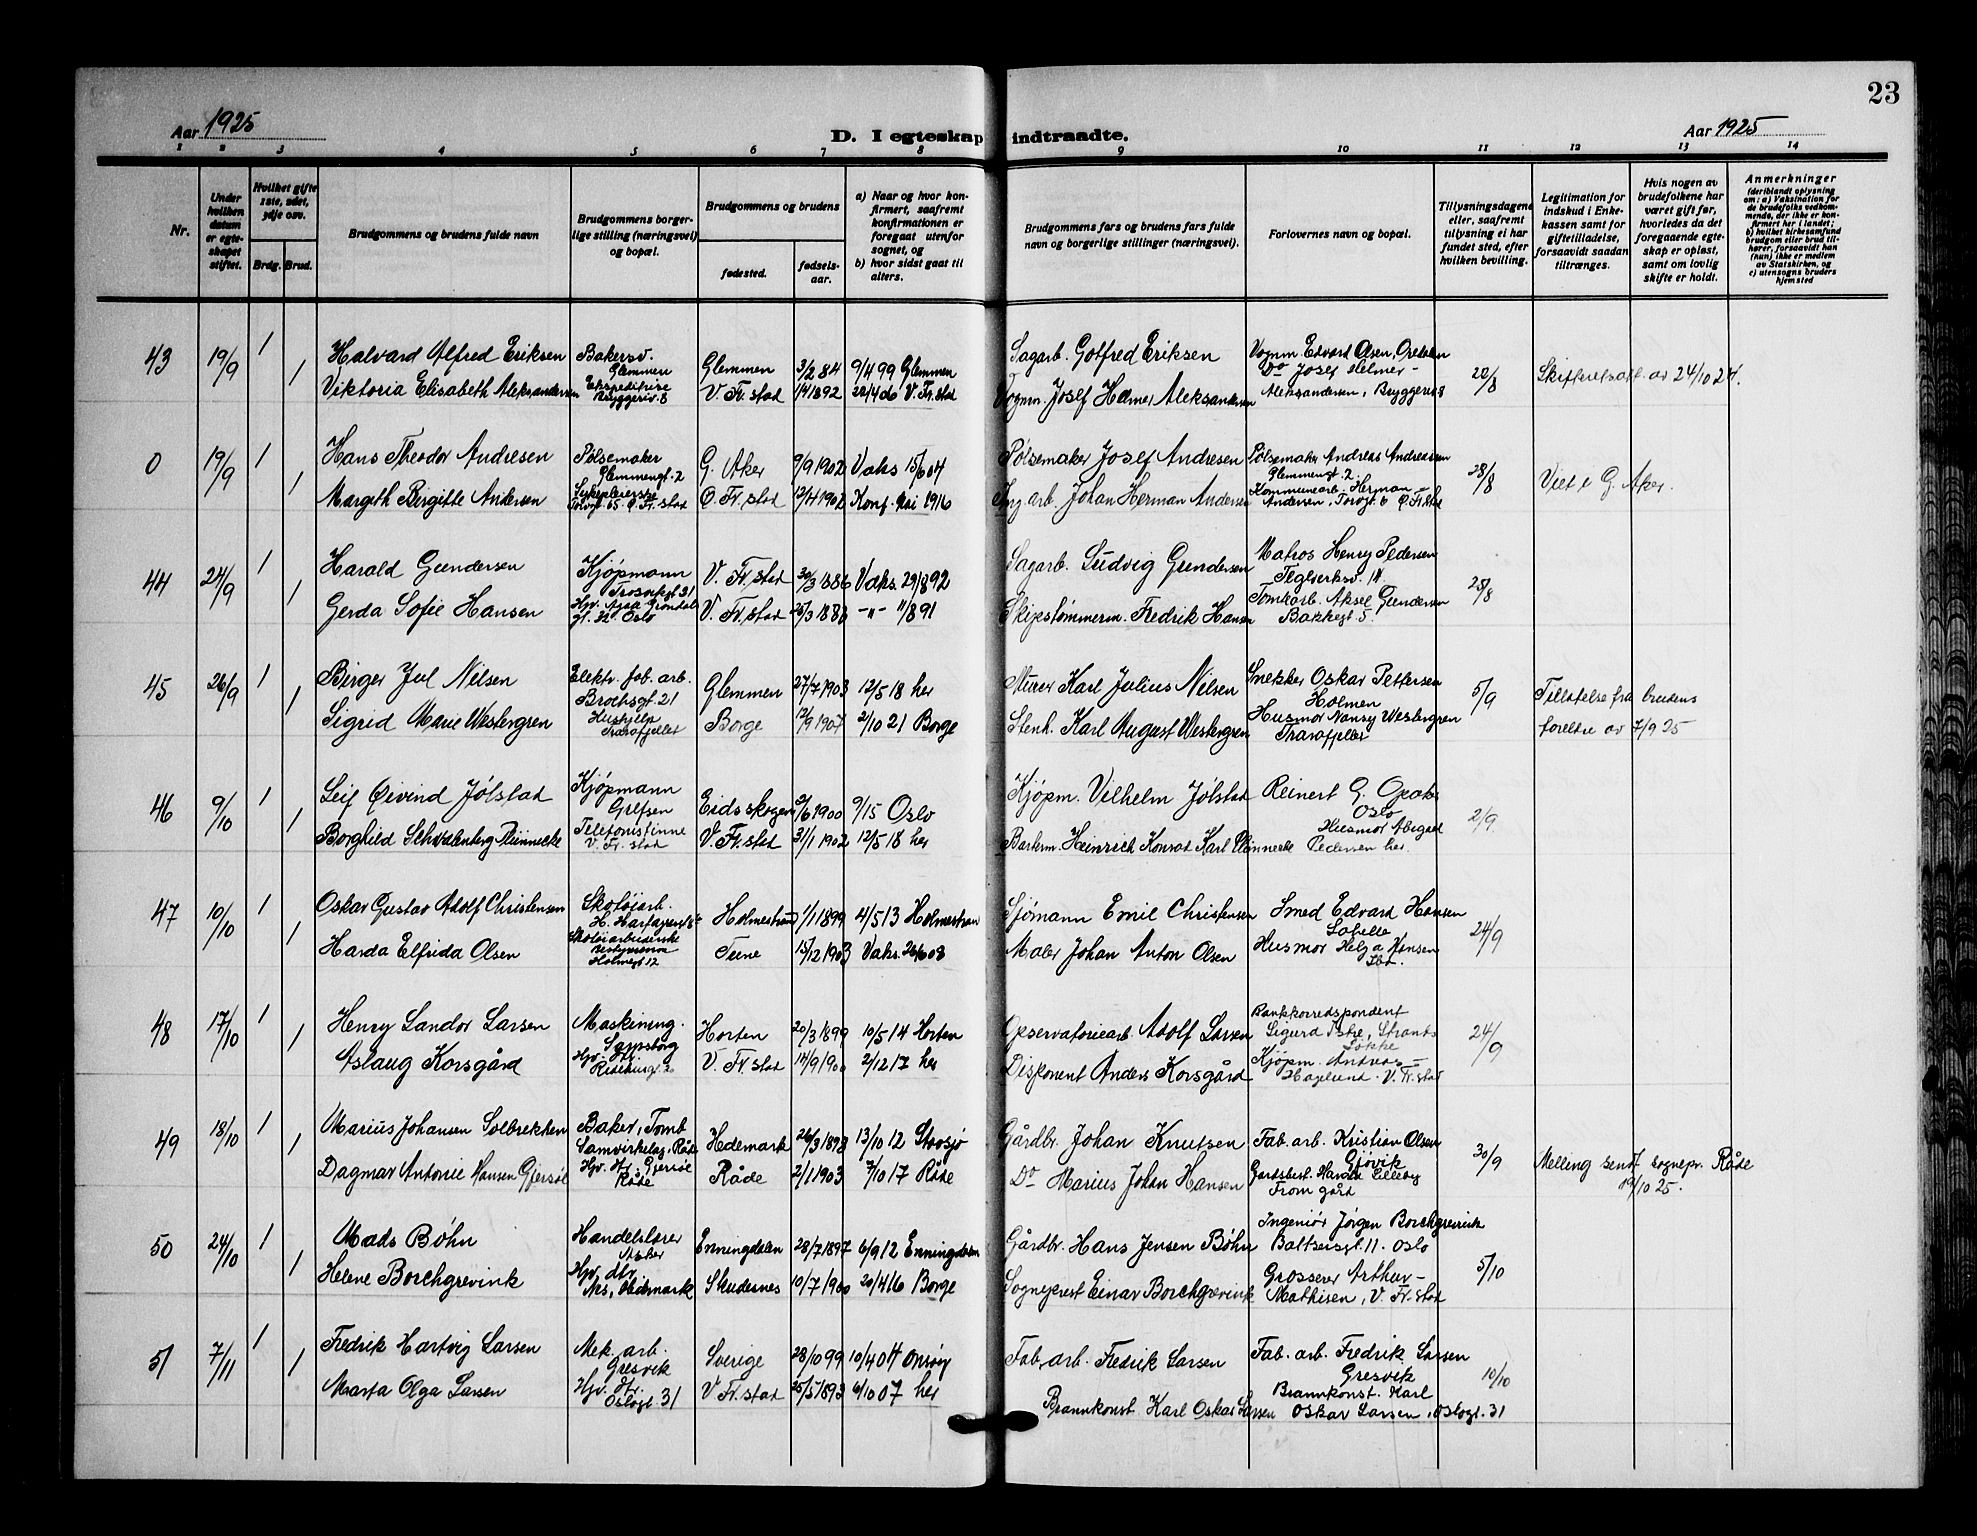 23
Aar 1925
D. I egteskap indtraadte.
Aar 1925
1 2 3 4 5 6 7 8 9 10 11 12 13 14
Nr.
Under hvilken datum er egteskapet stiftet.
Hvilket gifte 1ste, 2det, 3dje osv.
Brdg. Brud.
Brudgommens og brudens fulde navn
Brudgommens borgerlige stilling (næringsvei) og bopæl.
Brudgommens og brudens
fødested.
fødselsaar.
a) Naar og hvor konfirmert, saafremt konfirmationen er foregaat utenfor sognet, og
b) hvor sidst gaat til alters.
Brudgommens fars og brudens fars fulde navn og borgerlige stillinger (næringsvei).
Forlovernes navn og bopæl.
Tillysningsdagene eller, saafremt tillysning ei har fundet sted, efter hvilken bevilling.
Legitimation for indskud i Enkekassen samt for giftetilladelse, forsaavidt saadan tiltrænges.
Hvis nogen av brudefolkene har været gift før, hvorledes da det foregaaende egteskap er opløst, samt om lovlig skifte er holdt.
Anmerkninger
(deriblandt oplysning om: a) Vaksination for de brudefolks vedkommende, der ikke er konfirmert her i landet; b) hvilket kirkesamfund brudgom eller brud tilhører, forsaavidt han (hun) ikke er medlem av Statskirken, og c) utensogns bruders hjemsted
43 19/9 1 Halvard Alfred Eriksen Bakersv. Glemmen Glemmen 3/2 84 9/4 99 Glemmen Sagarb. Gotfred Eriksen Vognm Edvard Olsen, 20/8 Skifteretsatt. av 24/10 24.
1 Viktoria Elisabeth Aleksandersen Ekspeditrise Bryggeriv. 8 V. Fr. stad 1/4 1892 22/4 06 V. Fr. stad Vognm. Josef Helmer Aleksandersen Do Josef Helmer Aleksandersen, Bryggeriv 8
0 19/9 1 Hans Theodor Andresen Pølsemaker Glemmengt. 2 G. Aker 9/9 1902 Vaks 15/6 04 Pølsemaker Josef Andresen Pølsemaker Andreas Andreassen Glemmengt. 2 28/8 Viet i G. Aker.
1 Margith Birgitte Andersen Sykepleierske Torvgt. 65 Ø. Fr. stad Ø. Fr. stad 12/4 1902 Konf. Mai 1916 Ing. arb. Johan Herman Andersen Kommunearb. Herman Andersen, Torvgt. 6 Ø. Fr. stad
44 24/9 1 Harald Gundersen Kjøpmann Trosvikgt 21 V. Fr. stad 30/3 1886 Vaks. 29/8 92 Sagarb. Ludvig Gundersen Matros Henry Pedersen Teglverksv. 14 25/8
1 Gerda Sofie Hansen Hjv. Oslo V. Fr. stad 25/3 1886 -"- 11/8 91 Skipstømmerm. Fredrik Hansen Tomtearb. Aksel Gundersen Bakkegt. 5.
45 26/9 1 Birger Jul Nilsen Elektr. fab. arb. Brochsgt. 21 Glemmen 27/7 1903 12/5 18 her Murer Karl Julius Nilsen Snekker Oskar Pettersen Holmen 5/9 Tillatelse fra brudens
1 Sigrid Marie Westergren Hushjelp Trarafjellet Borge 12/9 1907 2/10 21 Borge Stenh. Karl August Westergren Husmor Nancy Westergren Trarafjellet foreldre av 7/9 25
46 9/10 1 Leif Øivind Jølstad Kjøpmann Grefsen Eidsskogen 2/6 1900 9/15 Oslo Kjøpm. Vilhelm Jølstad Reinert G. Oslo 2/9.
1 Borghild Schvalenberg Plünnecke Telefonistinne V. Fr. stad V. Fr. stad 31/1 1902 12/5 18 her Barkm. Heinrich Konrad Karl Plünnecke Husmor Abigael Pedersen her.
47 10/10 1 Oskar Gustav Adolf Christensen Skotøiarb. Holmestrand 1/1 1899 4/5 13 Holmestran Sjømann Emil Christensen Smed Edvard Hansen 24/9
1 Harda Elfrida Olsen Skotøiarbeiderske Holmegt 12 Tune 15/12 1903 Vaks. 26/6 08 Maler Johan Anton Olsen Husmor Helga Hansen Ibd.
48 17/10 1 Henry Sandor Larsen Maskining. Sarpsborg Horten 20/3 1899 10/5 14 Horten Observatoriearb. Adolf Larsen Bankkorrespondent Sigurd Løkke 24/9
1 Aslaug Korsgård Hjv. dtr. V. Fr. stad 14/9 1900 2/12 17 her Disponent Anders Korsgård Kjøpm. Andreas Haglund V. Fr. stad
49 18/10 1 Marius Johansen Solbrekken Baker, Tomb Samvirkelag, Råde Hedemark 26/3 1898 13/10 12 Stavsjø Gårdbr. Johan Knutsen Fab. arb. Kristian Olsen Gjøvik 30/9 Melling sendt sognepr. Råde
1 Dagmar Antonie Hansen Gjersøe Hjv. dtr. Gjersøe Råde Råde 2/1 1903 7/10 17 Råde Do Marius Johan Hansen Gårdsbest. Lilleby From gård 19/10 25.
50 24/10 1 Mads Bøhn Handelslærer Asker Enningdalen 28/7 1897 6/9 12 Enningdalen Gårdbr. Hans Jensen Bøhn Ingeniør Jørgen Borchgrevink Baltsersgt. 11. Oslo 5/10
1 Helene Borchgrevink Hjv. dtr. Nes, Hedmark Skudesnes 10/7 1900 20/4 16 Borge Sogneprest Einar Borchgrevink Grosserer Arthur Mathisen, V. Fr. stad
51 7/11 1 Fredrik Hartvig Larsen Mek. arb. Gresvik Sverige 28/10 99 10/4 04 Onsøy Fab. arb. Fredrik Larsen Fab. arb. Fredrik Larsen Gresvik 10/10
1 Marta Olga Larsen Hjv. dtr. Oslogt. 31 V. Fr. stad 25/5 1893 6/10 07 her Brannkonst. Karl Oskar Larsen Brannkonst. Karl Oskar Larsen, Oslogt. 31